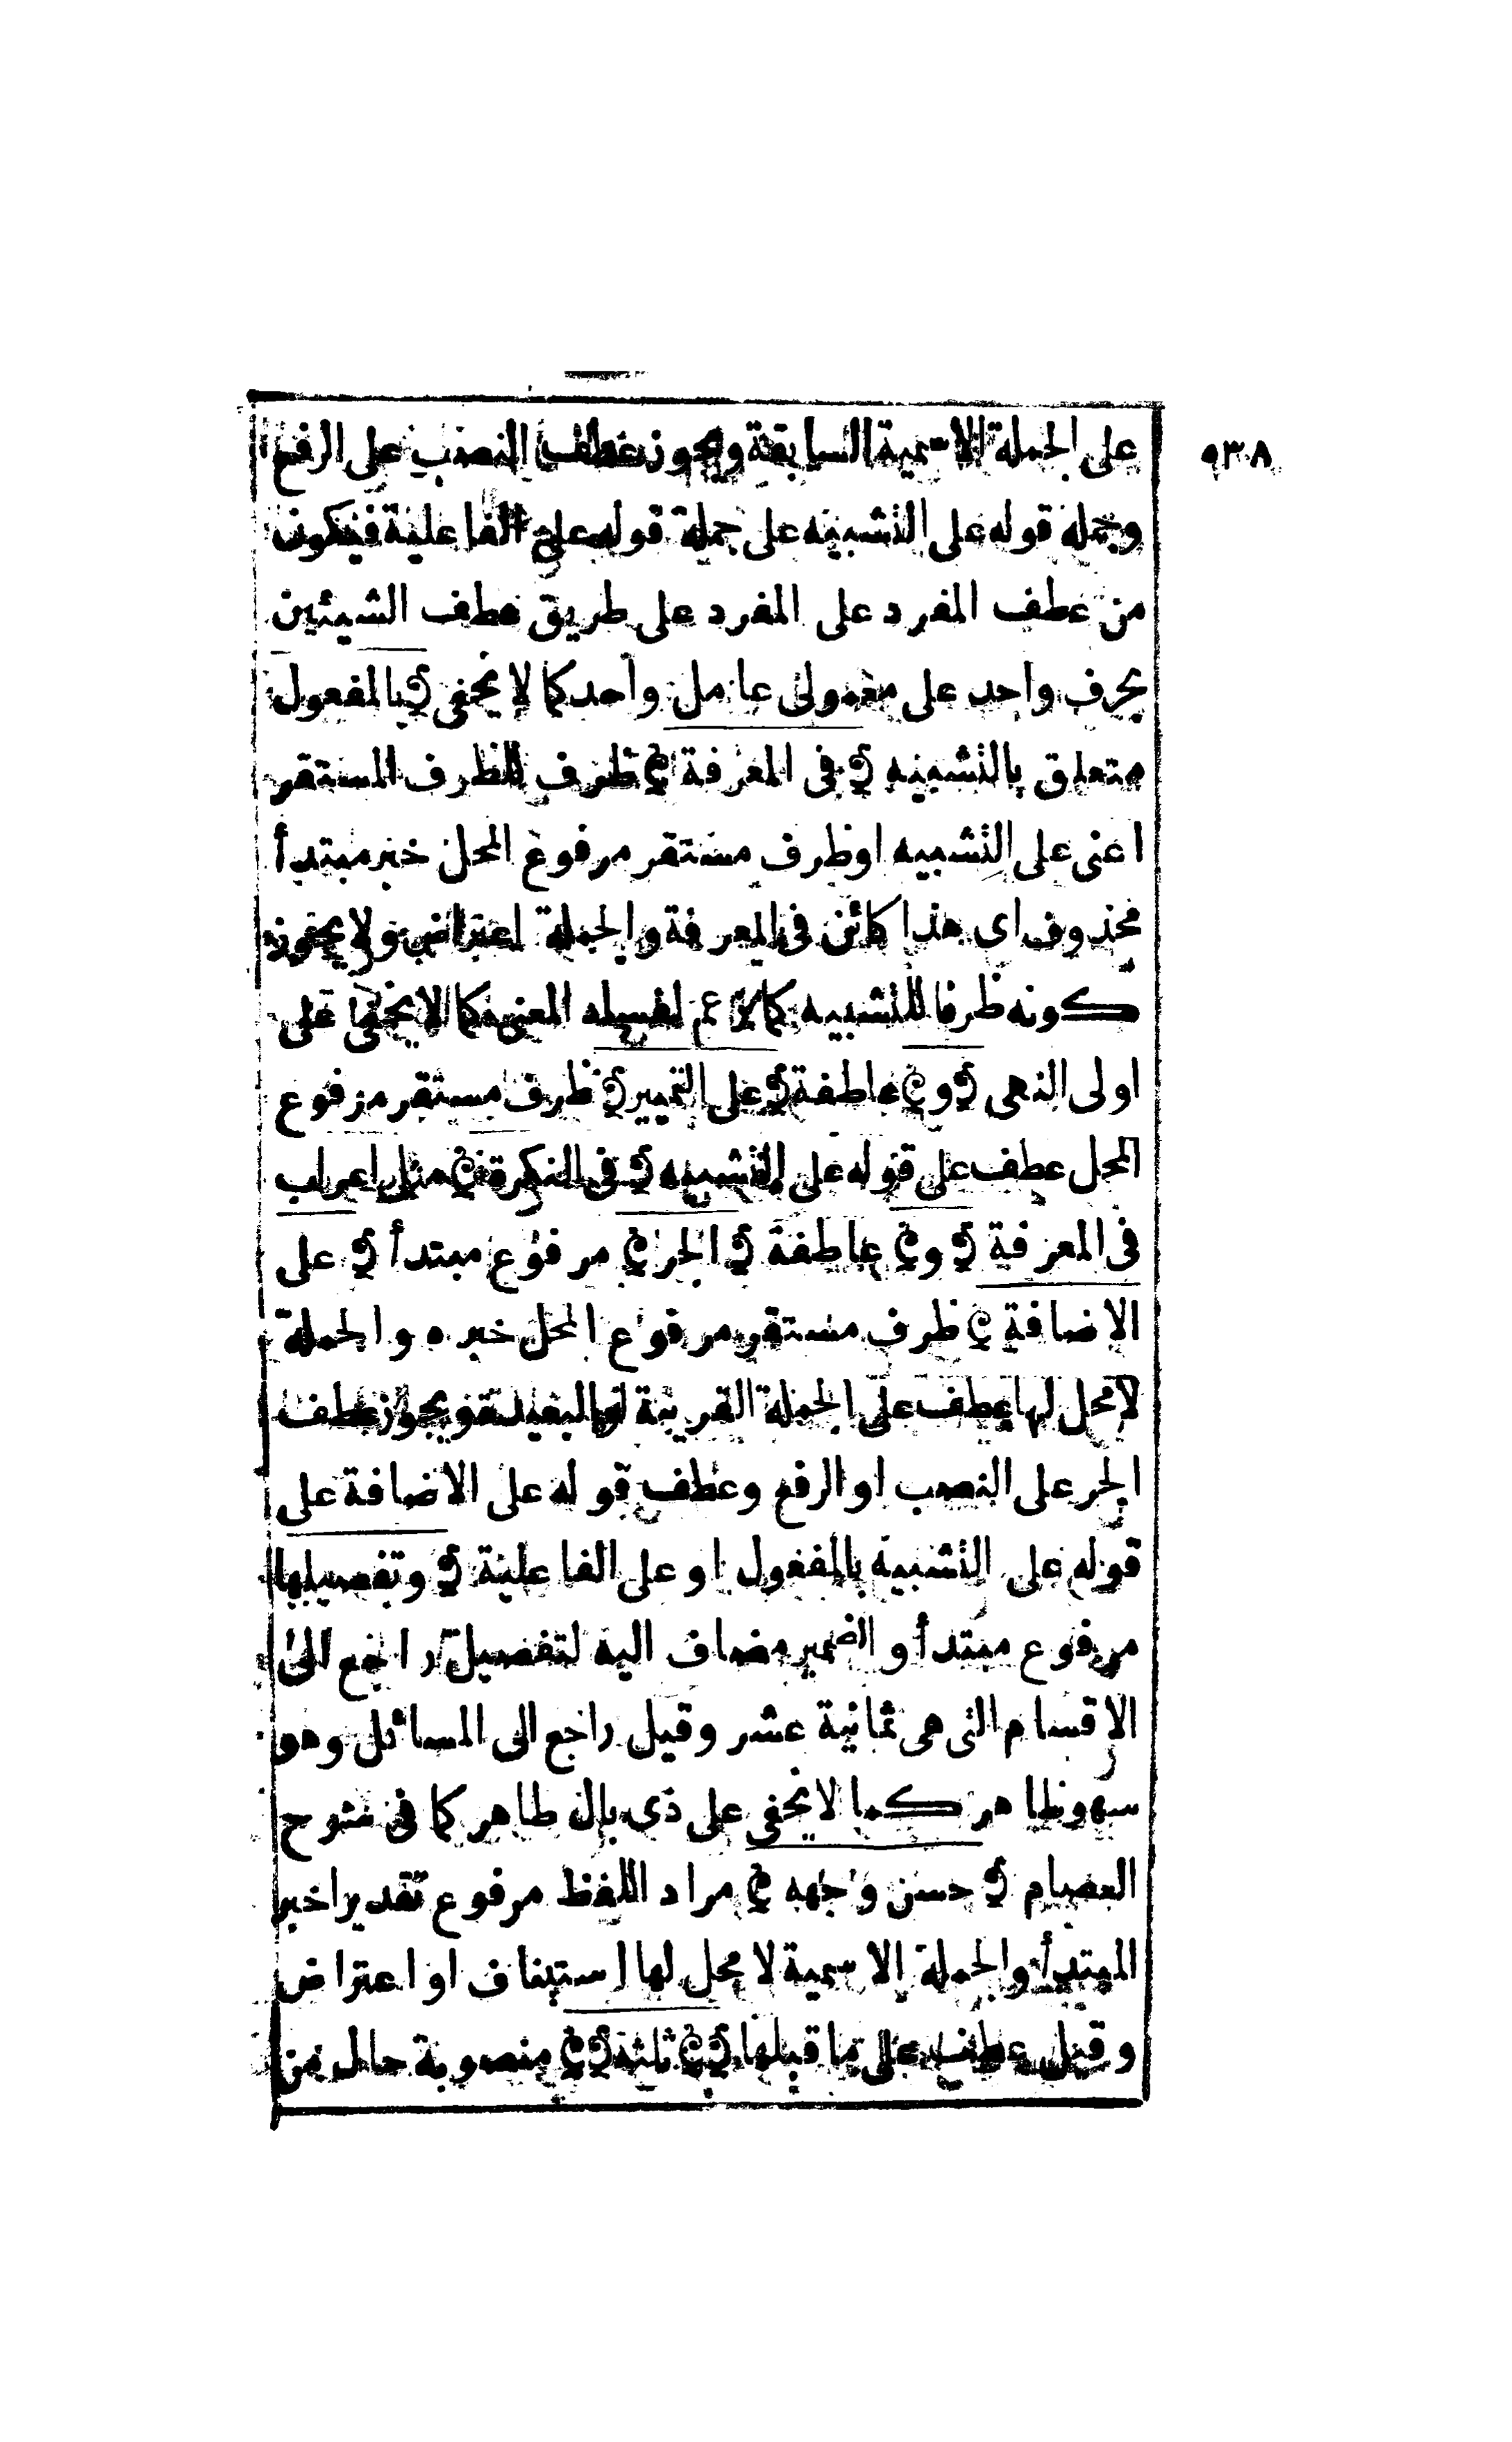 ٩٣٨
على الجملة الاسمية السابقة ويجوز عطف النصب على الرفع
وجملة قوله على التشبيه على جملة قوله على الفاعلية فيكون
من عطف المفرد على المفرد على طريق عطف الشيئين
بحرف واحد على معمولى عامل واحد كما لا يخفى ﴿ بالمفعول
متعلق بالتشبيه ﴿ فى المعرفة ﴾ ظرف للظرف المستقر
اعنى على التشبيه او ظرف مستقر مرفوع المحل خبر مبتدأ
محذوف اى هذا كائن فى المعرفة والجملة اعتراض ولا يجوز
كونه ظرفا للتشبيه كما زعم لفساد المعنى كما لا يخفى على
اولى النهى ﴿ و ﴾ عاطفة ﴿ على التمييز ﴾ ظرف مستقر مرفوع
المحل عطف على قوله على التشبيه ﴿ فى النكرة ﴾ مثل اعراب
فى المعرفة ﴿ و ﴾ عاطفة ﴿ الجر ﴾ مرفوع مبتدأ ﴿ على
الاضافة ﴾ ظرف مستقر مرفوع المحل خبره والجملة
لا محل لها عطف على الجملة القريبة او البعيدة ويجوز عطف
الجر على النصب او الرفع وعطف قوله على الاضافة على
قوله على التشبيه بالمفعول او على الفاعلية ﴿ وتفصيلها
مرفوع مبتدأ و الضمير مضاف اليه لتفصيل راجع الى
الاقسام التى هى ثمانية عشر وقيل راجع الى المسائل وهو
سهو ظاهر كما لا يخفى على ذى بال طاهر كما فى شرح
العصام ﴿ حسن وجهه ﴾ مراد اللفظ مرفوع تقديرا خبر
المبتدأ والجملة الاسمية لا محل لها استيناف او اعتراض
وقيل عطف على ما قبلها ﴿ ثلثة ﴾ منصوبة حال من